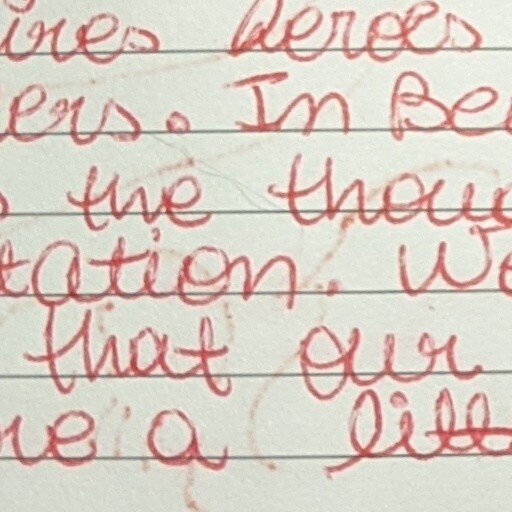 ires heroes
ers. In Be
the thou
tation. We
that our
a litt